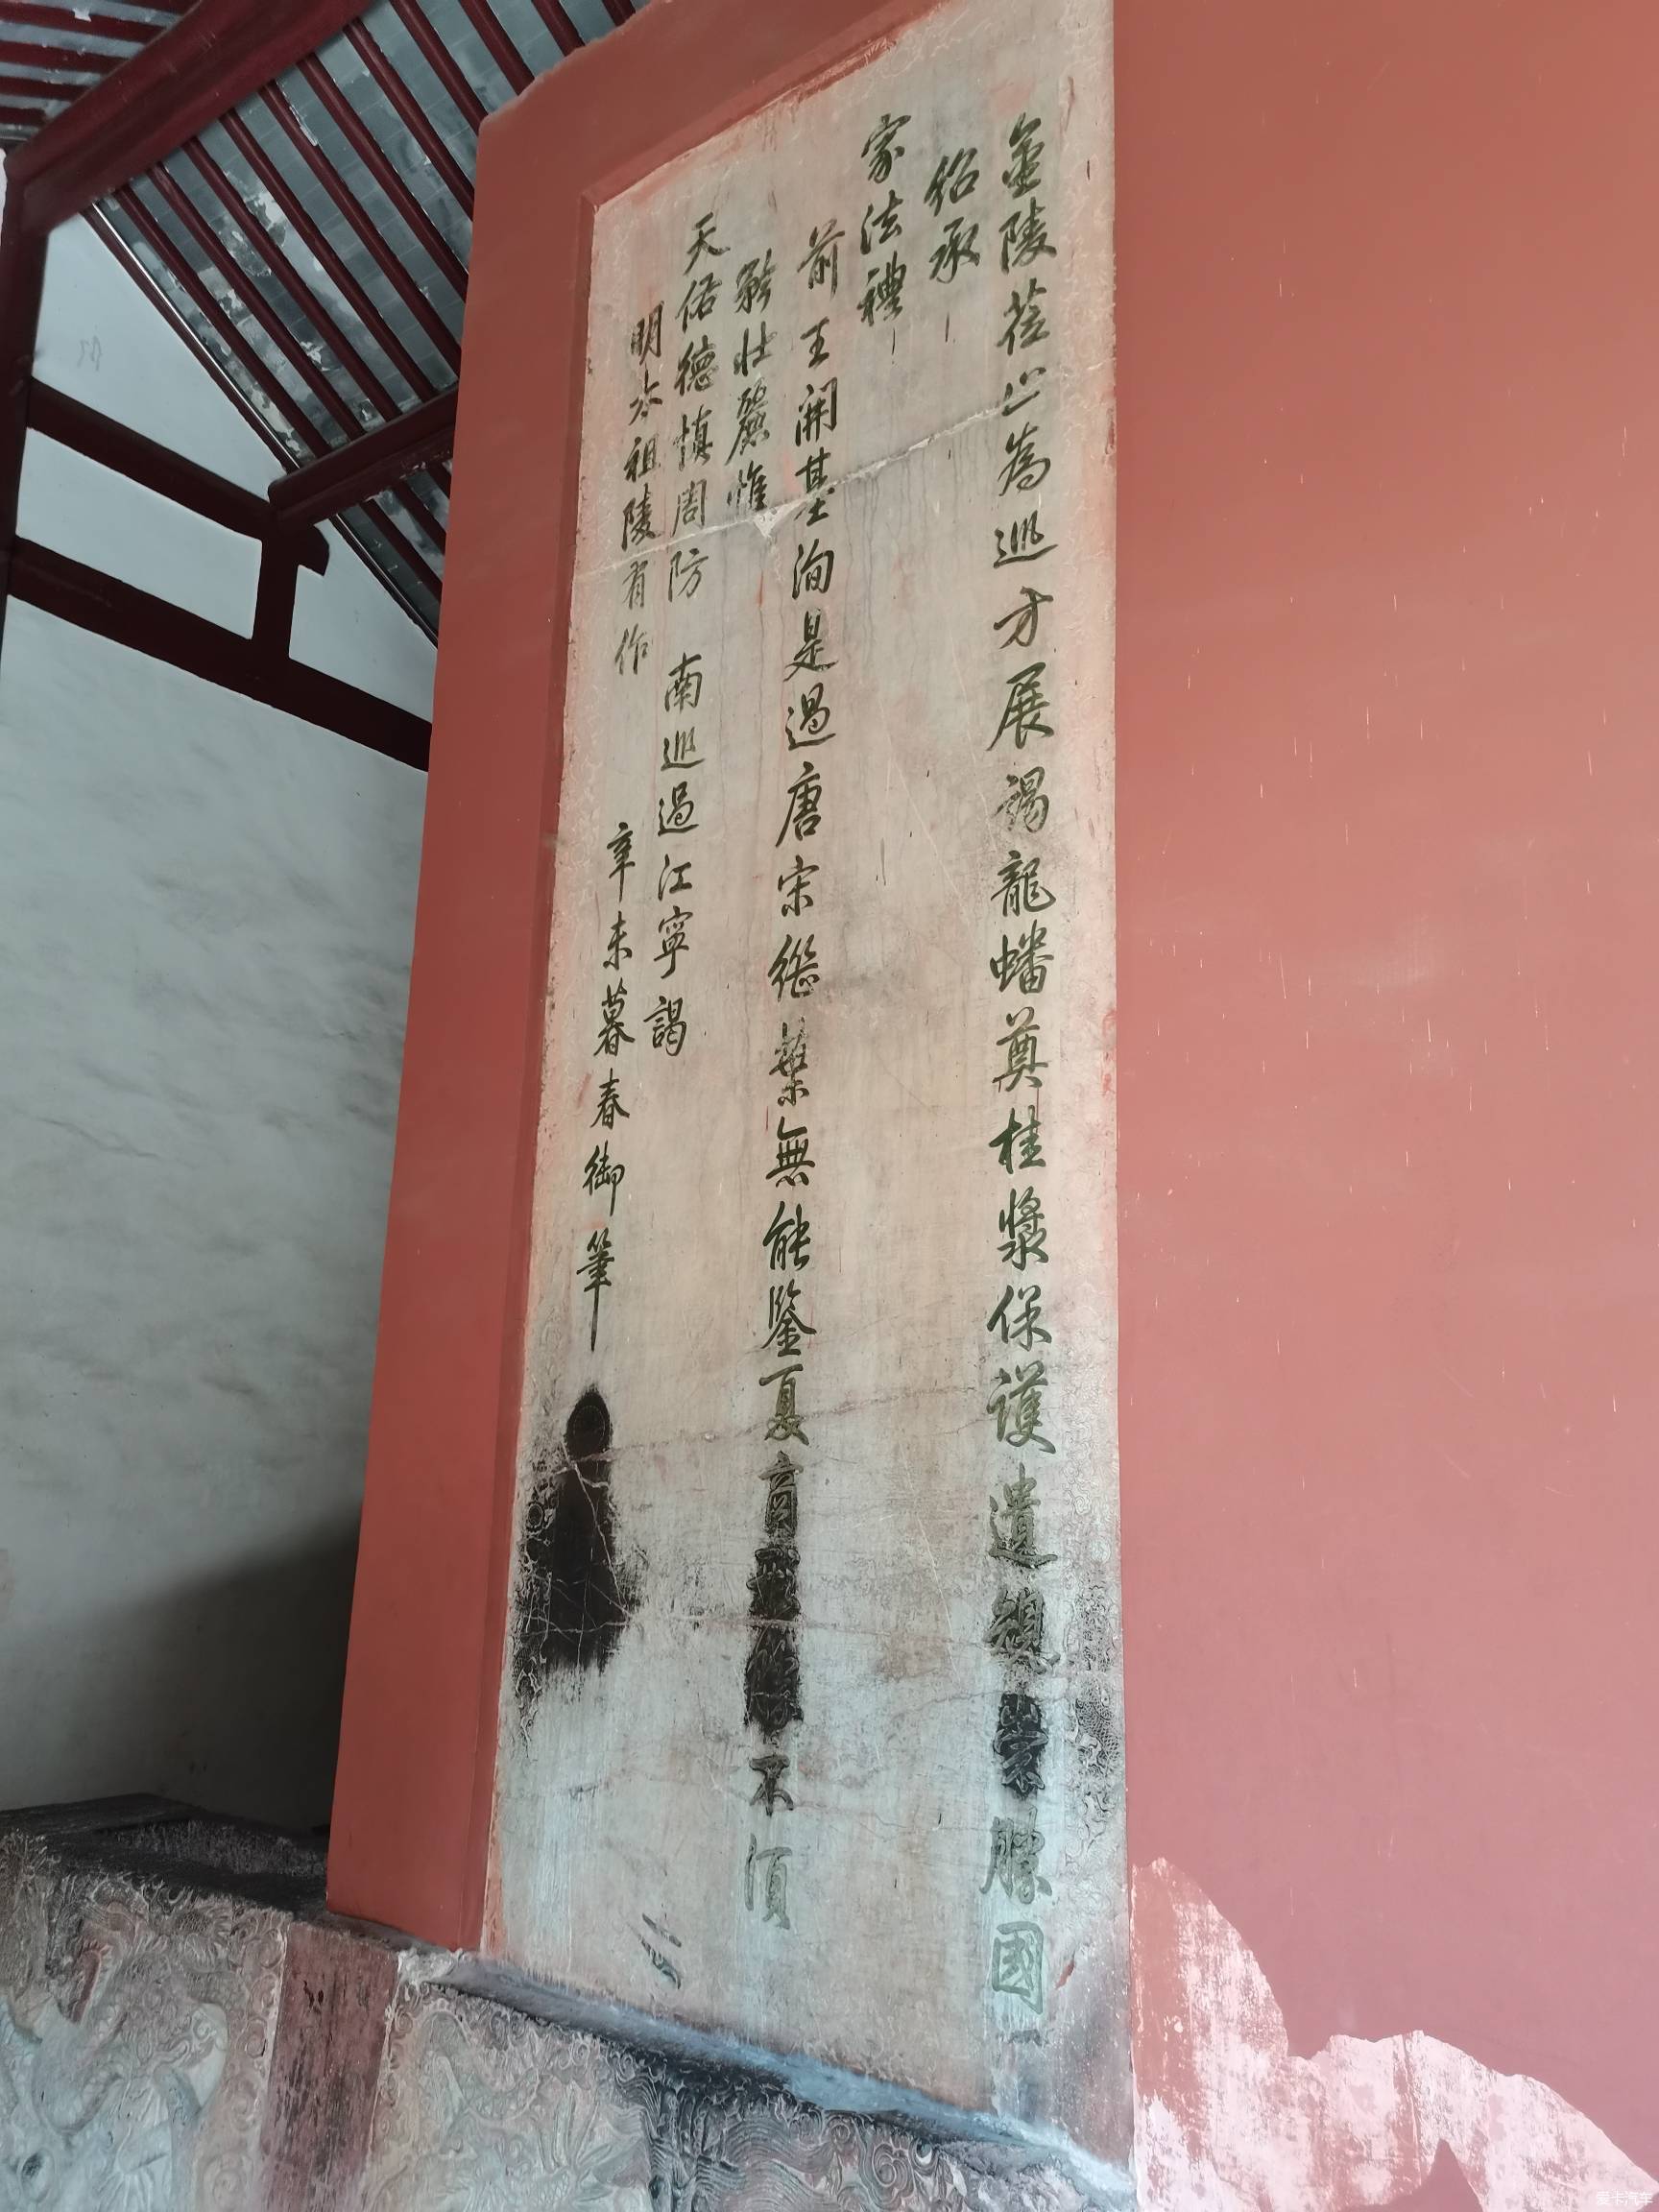 金陵蒞止為巡方展謁龍蟠奠桂漿保護遺規崇勝國
紹承
家法禮
前王開基洵是過唐宋繼無能鑒夏商不須
矜壯麗惟
天佑德慎周防 南巡過江寧謁
明太祖陵有作 辛未暮春御筆
爱卡汽车